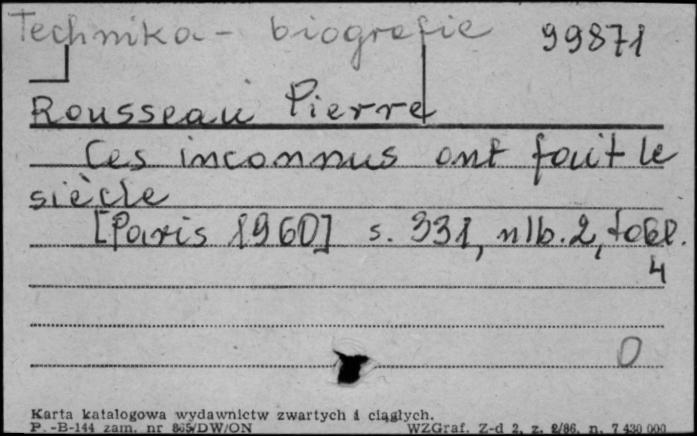 Technika - biografie 99871
Rousseau Pierre
Ces inconnus ont fait le
siècle
[Paris 1960] s. 331, nlb. 2, tabl.
4
0
Karta katalogowa wydawnictw zwartych i ciągłych.
P.-B-144 zam. nr 865/DW/ON WZGraf. Z-d 2, z. 2/86, n. 7 430 000